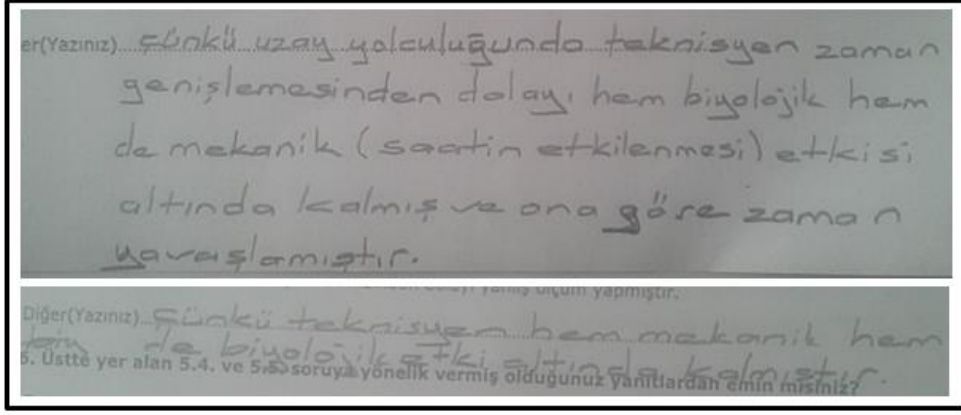 er(Yazınız)....Çünkü uzay yolculuğunda teknisyen zaman
genişlemesinden dolayı hem biyolojik hem
de mekanik (saatin etkilenmesi) etkisi
altında kalmış ve ona göre zaman
yavaşlamıştır.
yanlış ölçüm yapmıştır.
Diğer(Yazınız)...Çünkü teknisyen hem mekanik hem
de biyolojik etki altında kalmıştır.
5. Üstte yer alan 5.4. ve 5.5. soruya yönelik vermiş olduğunuz yanıtlardan emin misiniz?